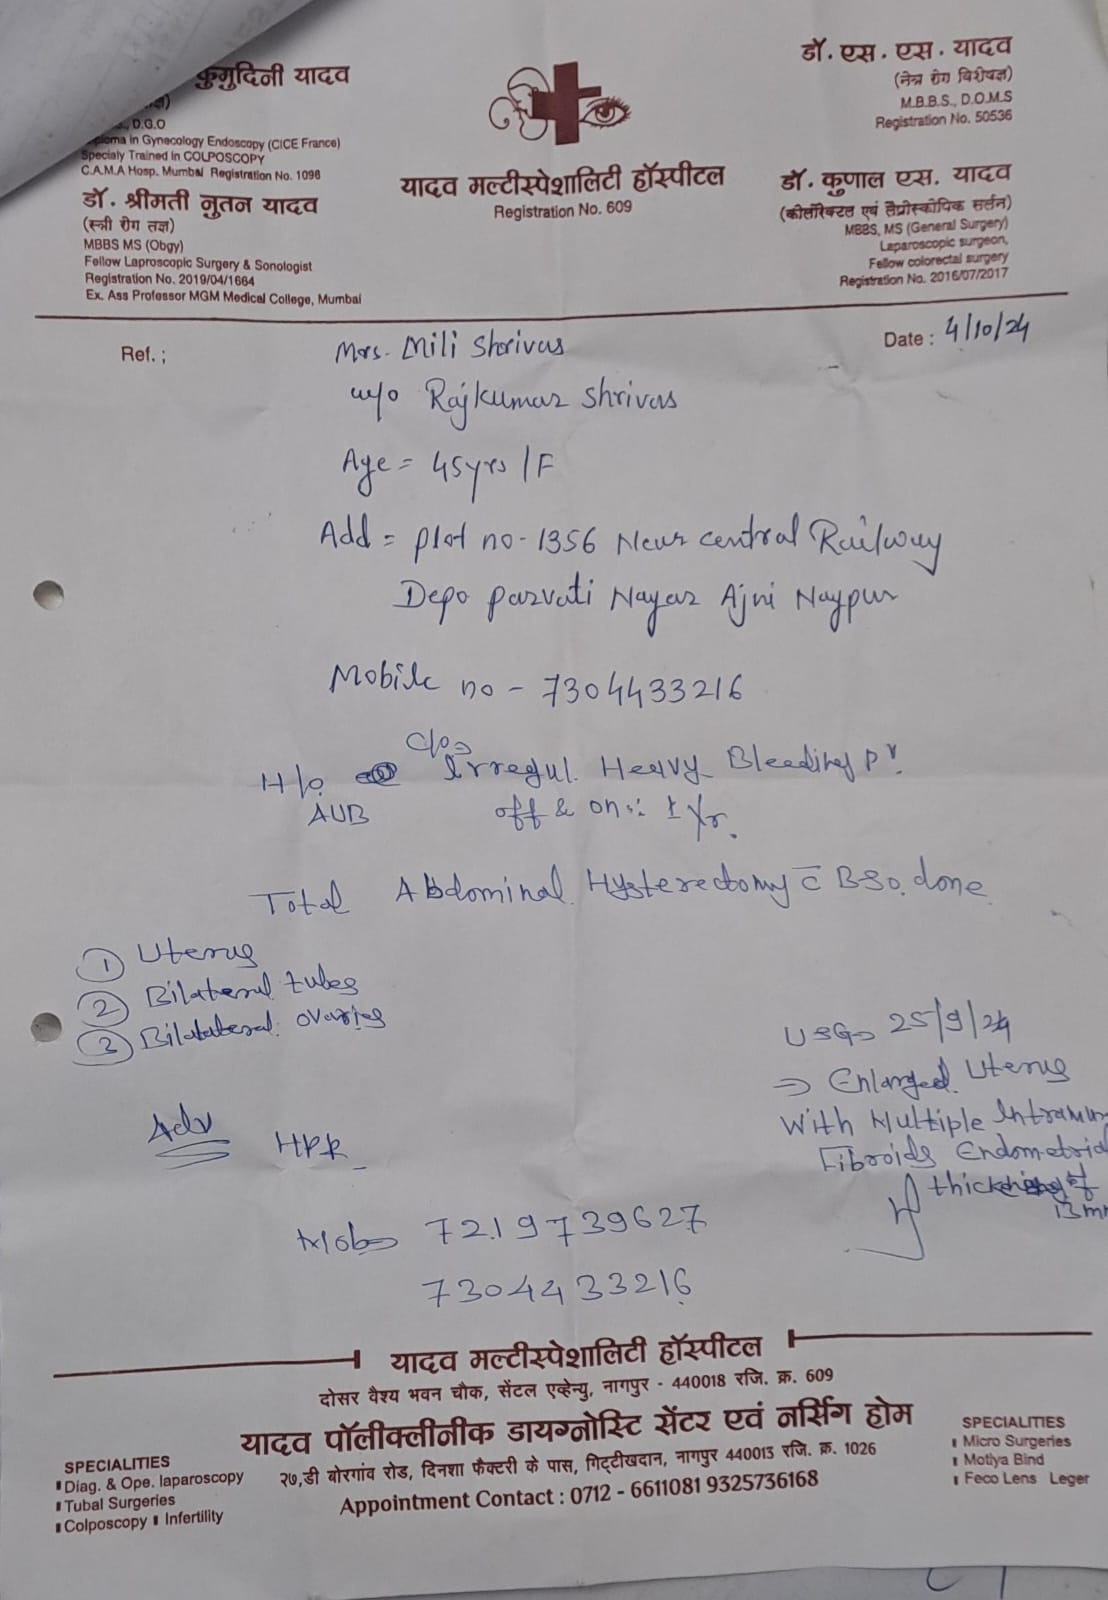 कुमुदिनी यादव
D.G.O
in Gynecology Endoscopy (CICE France)
Specialy Trained in COLPOSCOPY
C.A.M.A Hosp. Mumbai Registration No. 1098
डॉ. श्रीमती नुतन यादव
(स्त्री रोग तज्ञ)
MBBS MS (Obgy)
Fellow Laproscopic Surgery & Sonologist
Registration No. 2019/04/1664
Ex. Ass Professor MGM Medical College, Mumbai
यादव मल्टीस्पेशालिटी हॉस्पीटल
Registration No. 609
डॉ. एस. एस. यादव
(नेत्र रोग विशेषज्ञ)
M.B.B.S., D.O.M.S
Registration No. 50536
डॉ. कुणाल एस. यादव
(कोलोरेक्टल एवं लैप्रोस्कोपिक सर्जन)
MBBS, MS (General Surgery)
Laparoscopic surgeon,
Fellow colorectal surgery
Registration No. 2016/07/2017
Ref. ;
Date : 4/10/24
Mrs. Mili Shrivas
w/o Rajkumar Shrivas
Age = 45yrs / F
Add = plot no - 1356 Near central Railway
Depo parvati Nagar Ajni Nagpur
Mobile no - 7304433216
c/o
H/o Irregul. Heavy Bleeding P
AUB off & on 1 Yr.
Total Abdominal Hysterectomy c̄ BSO. done
① Uterus
② Bilateral tubes
③ Bilateral ovaries
USG 25/9/24
⇒ Enlarged Uterus
With Multiple Intramu
Fibroids Endometrial
thickening of
13 mm
Adv HPR
Mob 7219739627
7304433216
यादव मल्टीस्पेशालिटी हॉस्पीटल
दोसर वैश्य भवन चौक, सेंटल एव्हेन्यु, नागपुर - 440018 रजि. क्र. 609
यादव पॉलीक्लीनीक डायग्नोस्टि सेंटर एवं नर्सिंग होम
२७,डी बोरगांव रोड, दिनशा फैक्टरी के पास, गिट्टीखदान, नागपुर 440013 रजि. क्र. 1026
Appointment Contact : 0712 - 6611081 9325736168
SPECIALITIES
Diag. & Ope. laparoscopy
Tubal Surgeries
Colposcopy Infertility
SPECIALITIES
Micro Surgeries
Motiya Bind
Feco Lens Leger